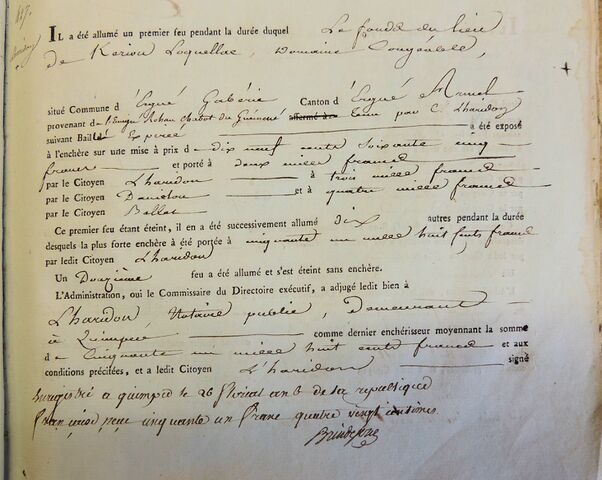 IL a été allumé un premier feu pendant la durée duquel Le fonds du lieu
de Keriou Loquellac, Domaine Congeable,
situé Commune d'Ergué Gabéric Canton d'Ergué Armel
provenant de l'Emigré Rohan Chabot du Guemené affermé à tenu par C. Lharidon
suivant Bail Expiré a été exposé
à l'enchère sur une mise à prix de dix neuf cents soixante cinq
francs et porté à deux mille francs
par le Citoyen Lharidon à trois mille francs
par le Citoyen Danielou et à quatre mille francs
par le Citoyen Bollot
Ce premier feu étant éteint, il en a été successivement allumé dix autres pendant la durée
desquels la plus forte enchère a été portée à cinquante un mille huit cents francs
par ledit Citoyen Lharidon
Un Douzième feu a été allumé et s'est éteint sans enchère.
L'Administration, oui le Commissaire du Directoire exécutif, a adjugé ledit bien à
Lharidon, Notaire public, Demeurant
à Quimper comme dernier enchérisseur moyennant la somme
de Cinquante un mille huit cents francs et aux
conditions précitées, et a ledit Citoyen Lharidon signé
Enregistré a quimper le 26 floreal an 6 de la republique
francaise reçu cinquante un franc quatre vingt centimes.